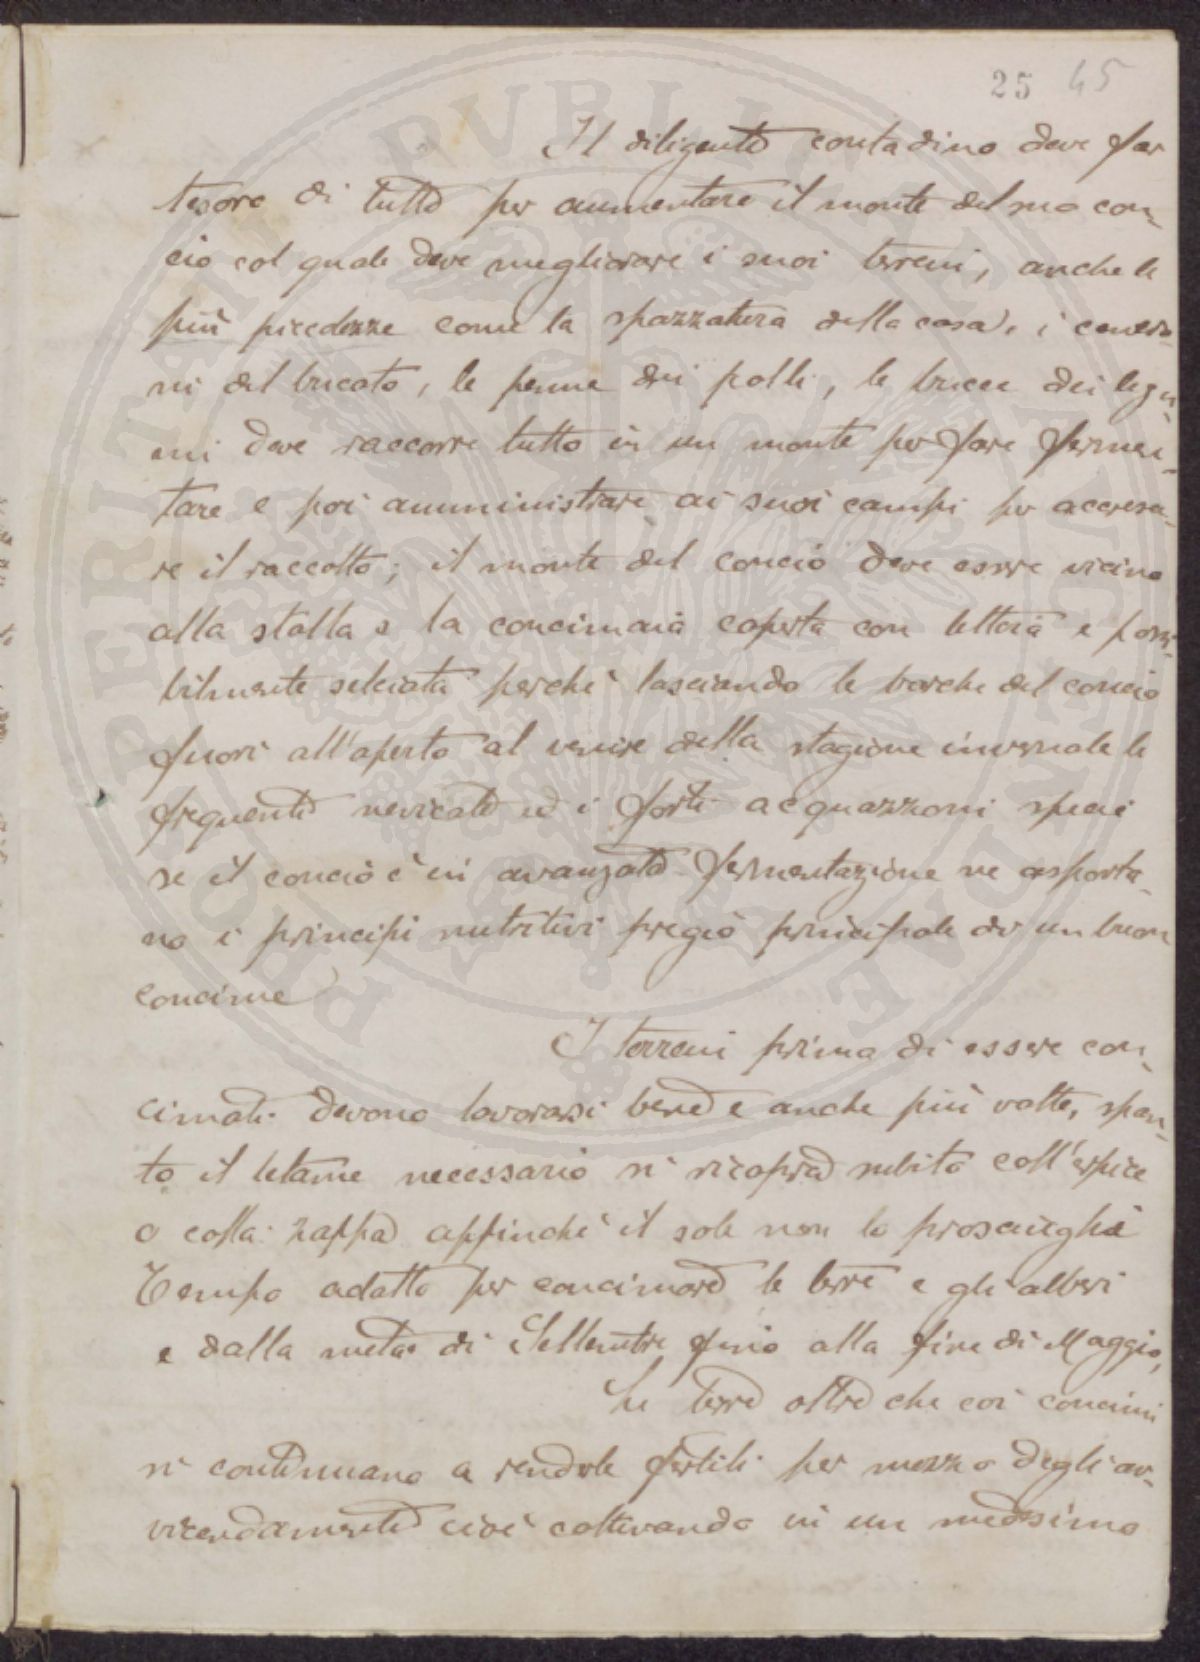 25 45
Il diligente contadino deve far
tesoro di tutto per aumentare il monte del suo con-
cio col quale deve megliorare i suoi terreni, anche le
più piccolezze come la spazzatura della casa, i ceneri-
ni del bucato, le penne dei polli, le bucce dei legu-
mi deve raccorre tutto in un monte per fare fermen-
tare e poi amministrare ai suoi campi per accresce-
re il raccolto; il monte del concio deve essere vicino
alla stalla e la concimaia coperta con tettoia e possi-
bilmente selciata perchè lasciando le barche del concio
fuori all'aperto al venire della stagione invernale le
frequenti nevicate ed i forti acquazzoni speci
se il concio è in avanzata fermentazione ne asporta-
no i principi nutritivi pregio principale di un buon
concime
I terreni prima di essere con-
cimati devono lavorarsi bene e anche più volte, span-
to il letame necessario si ricopra subito coll'erpice
o colla zappa affinchè il sole non lo prosciughi
Tempo adatto per concimare le terre e gli alberi
e dalla metà di Settembre fino alla fine di Maggio,
Le terre oltre che coi concimi
si continuano a renderle fertili per mezzo degli av-
vicendamenti cioè coltivando in un medesimo
PROPERITATI PVBLICAE AVGENDAE